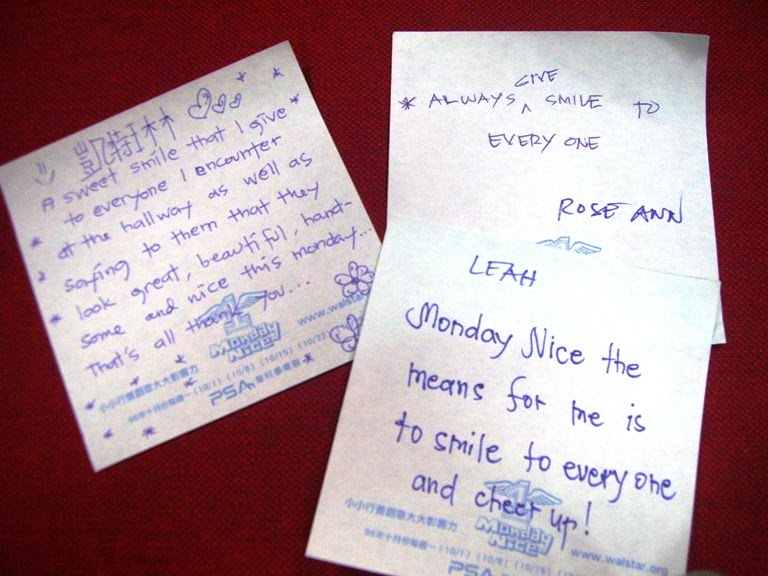 凱特琳
A sweet smile that I give
to everyone I encounter
at the hallway as well as
saying to them that they
look great, beautiful, hand-
some and nice this monday...
That's all thank you...
1
Monday
Nice!
www.walstar.
小小行善創意大大影響力
98年十月份每週一 (10/1) (10/8) (10/15) (10/22)
PSA 華科事業群
* ALWAYS GIVE SMILE TO
EVERY ONE
ROSE ANN
LEAH
Monday Nice the
means for me is
to smile to everyone
and cheer up!
1
Monday
Nice!
小小行善創意大大影響力
www.walstar.org
98年十月份每週一 (10/1) (10/8) (10/15)
PSA